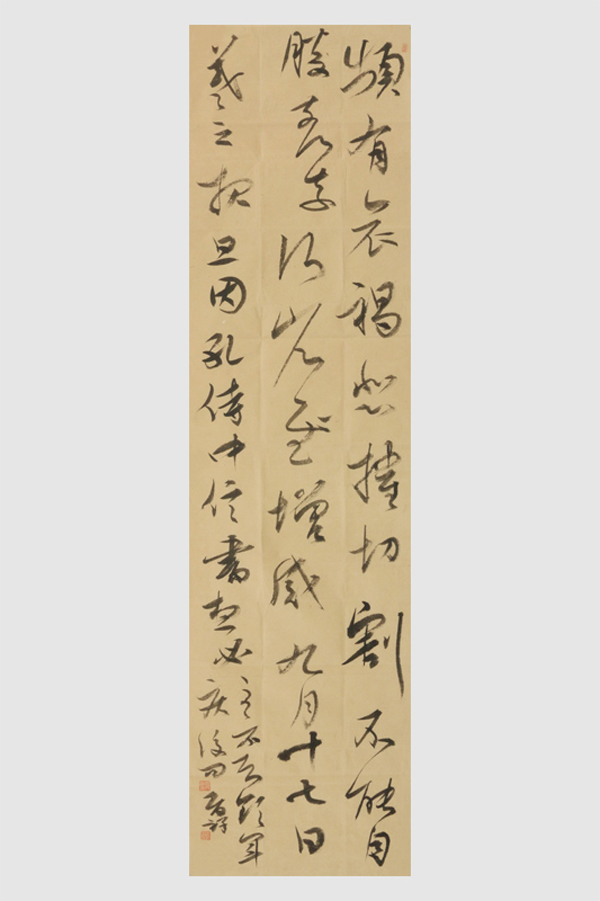 頻有哀禍悲摧切割不能自
勝奈何奈何省慰增感九月十七日
羲之報且因孔侍中信書想必
至不知領軍
疾後問